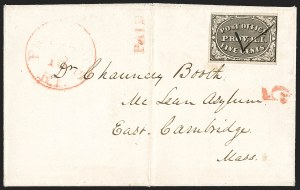 PAID
POST OFFICE
PROV. R.I.
FIVE CENTS
5
Dr Chauncey Booth
Mc Lean Asylum
East Cambridge
Mass.